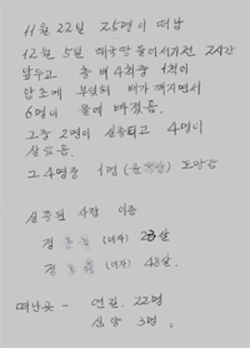 11월 22일 25명이 떠남
12월 5일 태국땅 들어서기전 2시간
앞두고 총 배 4척중 1척이
암초에 부딪혀 배가 깨지면서
6명이 물에 빠졌음.
그중 2명이 실종되고 4명이
살았음.
그 4명중 1명 (윤) 도망감
실종된 사람 이름
정 (여자) 23살
정 (여자) 48살.
떠난곳 - 연길. 22명
심양 3명.